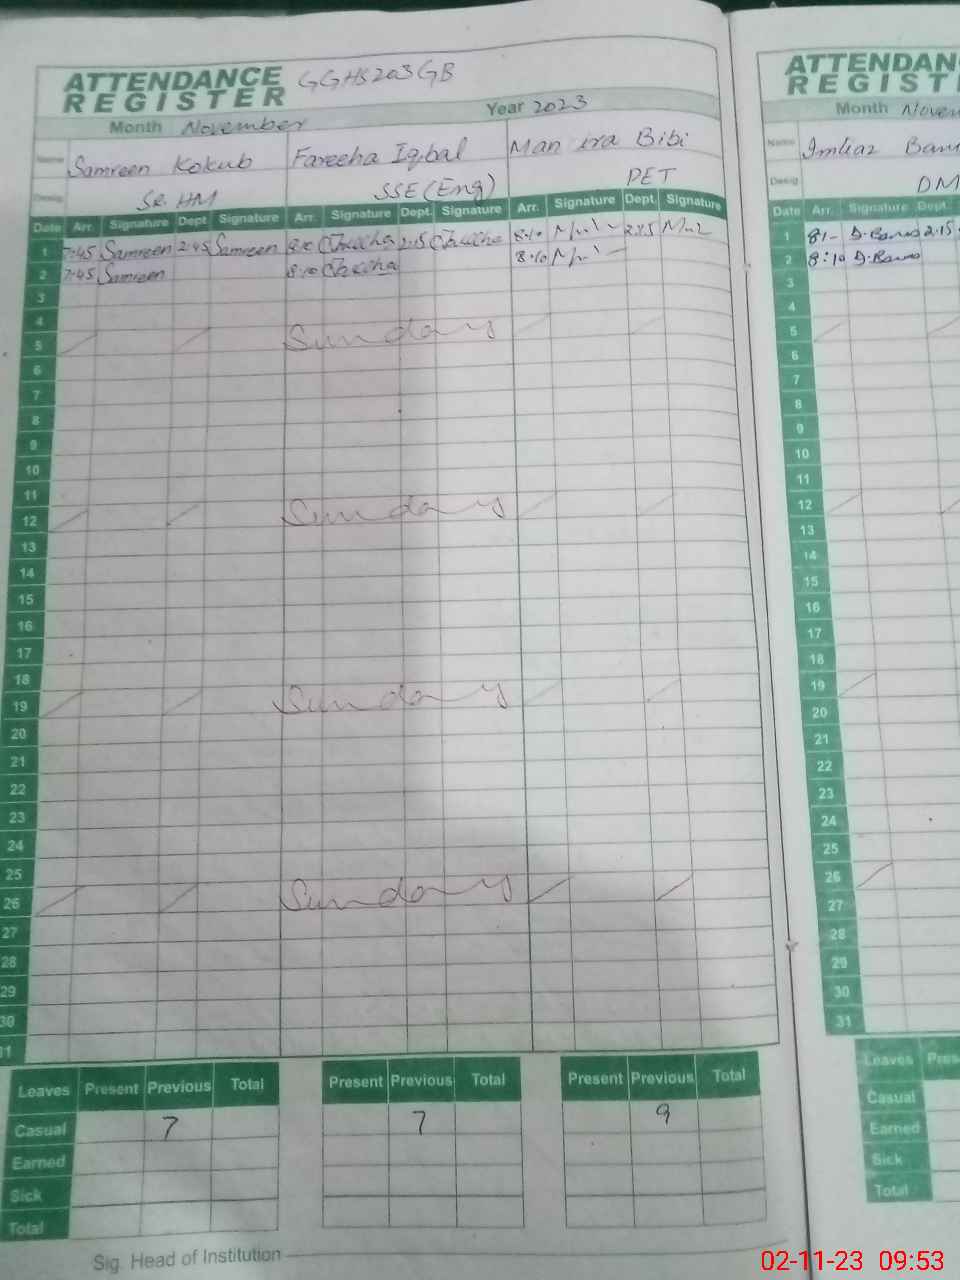 ATTENDANCE REGISTER GGHS203GB
Month November Year 2023
Name Samreen Kokub Fareeha Iqbal Bibi
Desig Sr. HM SSE (Eng) PET
Date Arr. Signature Dept. Signature Arr. Signature Dept. Signature Arr. Signature Dept. Signature
1 7:45 Samreen 2:45 Samreen 2:15 8:10 2:15
2 7:45 Samreen 8:10 8:10
3
4
5 Sunday
6
7
8
9
10
11
12 Sunday
13
14
15
16
17
18
19 Sunday
20
21
22
23
24
25
26 Sunday
27
28
29
30
31
Leaves Present Previous Total Present Previous Total Present Previous Total
Casual 7 7 9
Earned
Sick
Total
Sig. Head of Institution
ATTENDAN
REGIST
Month Novem
Name
Desig DM
Date Arr. Signature Dept.
1 2:15
2 8:10
3
4
5
6
7
8
9
10
11
12
13
14
15
16
17
18
19
20
21
22
23
24
25
26
27
28
29
30
31
Leaves Pres
Casual
Earned
Sick
Total
02-11-23 09:53